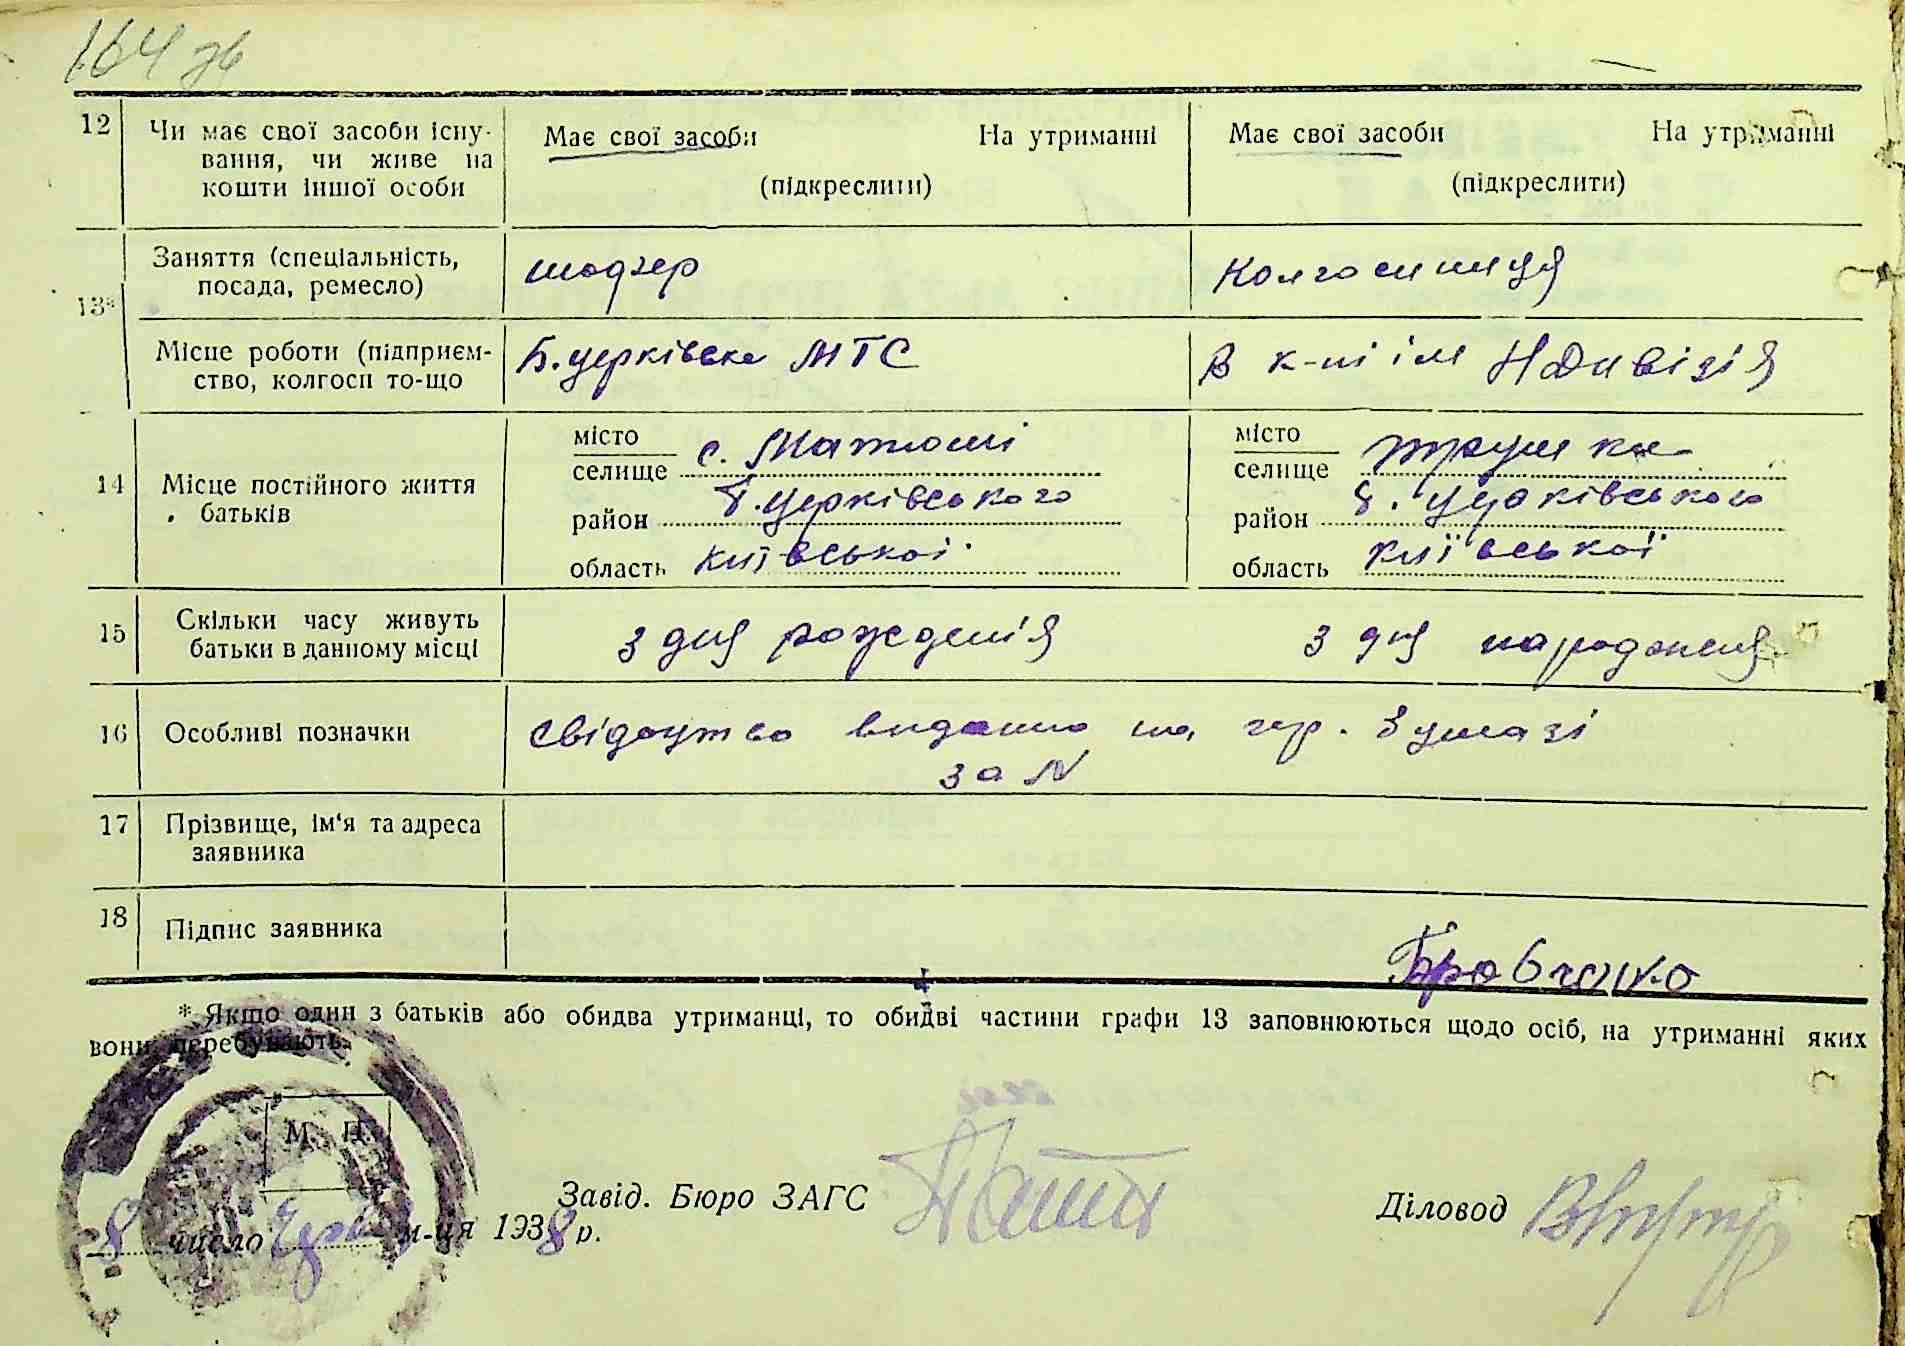 164 зв
12 Чи має свої засоби існу- Має свої засоби На утриманні Має свої засоби На утриманні
вання, чи живе на
кошти іншої особи (підкреслити) (підкреслити)
13* Заняття (спеціальність, шофер Колгосниця
посада, ремесло)
Місце роботи (підприєм- Б. церківське МТС В к-пі ім Н Дивізія
ство, колгосп то-що
14 Місце постійного життя місто місто
батьків селище с. Матюші селище Трушки
район Б. Церківського район Б. Церківського
область Київської область Київської
15 Скільки часу живуть З дня рождения З дня народженя
батьки в данному місці
16 Особливі позначки Свідоцтво видано на гер. бумазі
за N
17 Прізвище, ім'я та адреса
заявника
18 Підпис заявника
* Якщо один з батьків або обидва утриманці, то обидві частини графи 13 заповнюються щодо осіб, на утриманні яких
вони перебувають.
М. П.
Завід. Бюро ЗАГС Діловод
8 число м-ця 1938 р.